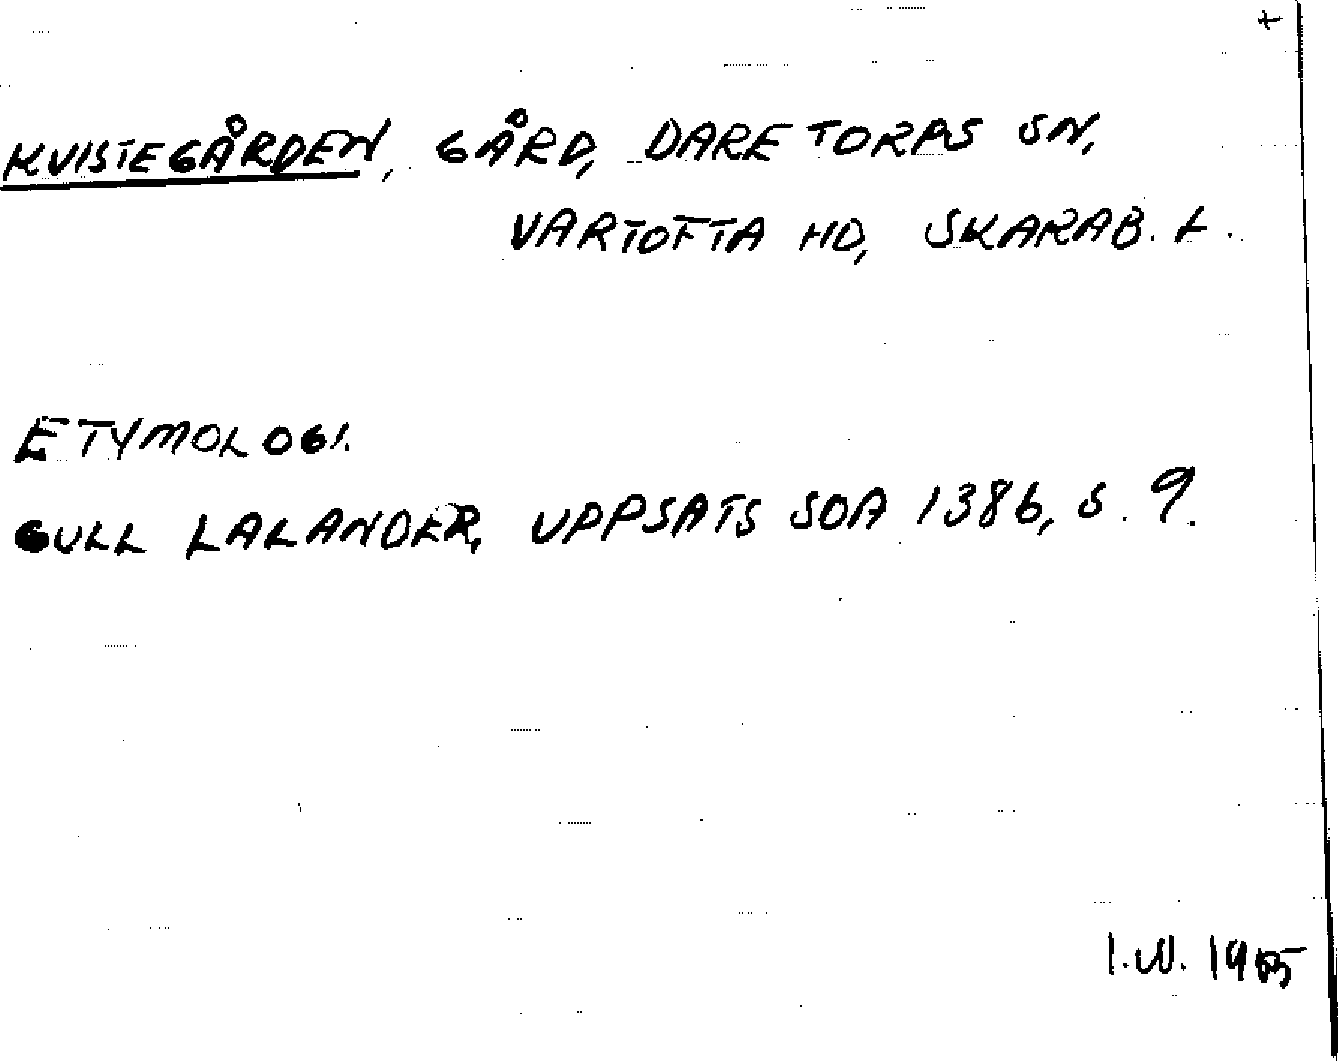 +
KVISTEGÅRDEN, GÅRD, DARETORPS SN,
VARTOFTA HD, SKARAB. L.
ETYMOLOGI.
GULL LALANDER, UPPSATS SOA 1386, S. 9.
I.W.